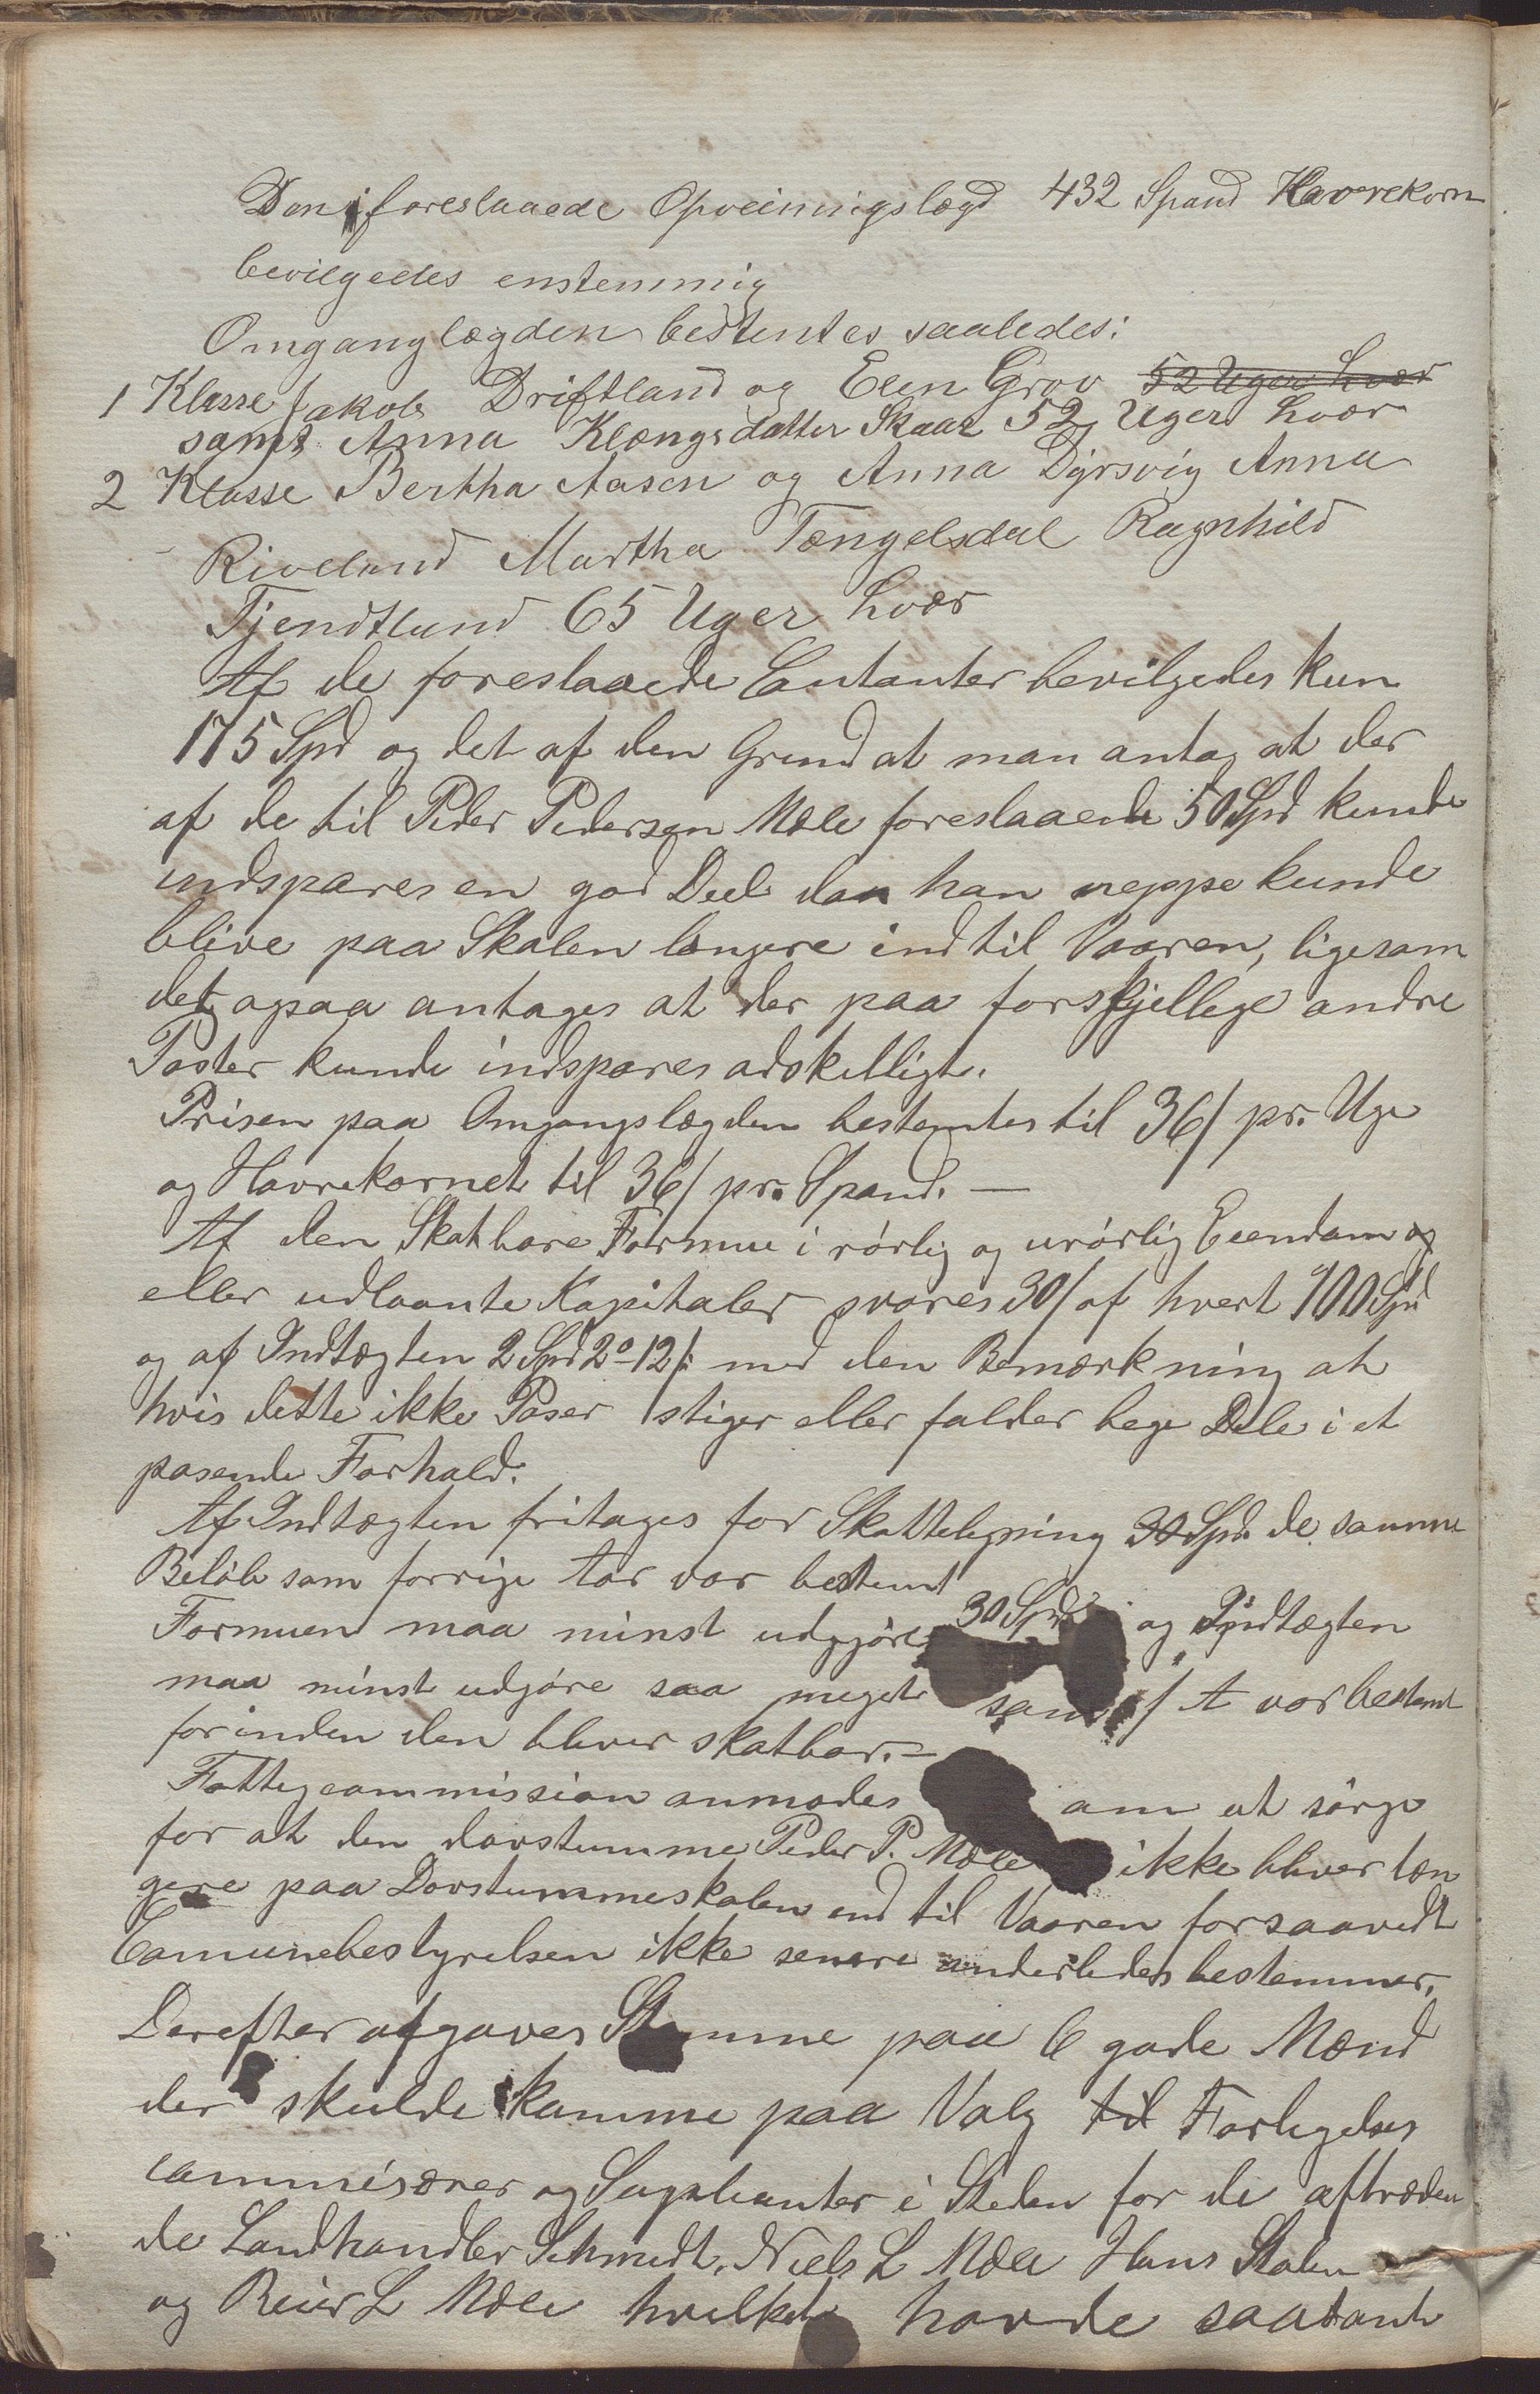 Den foreslaaede Opveiningslægd 432 Spand Havrekorn
bevilgedes enstemmig
Omganglægden bestemtes saaledes:
1 Klasse Jakob Driftland og Elen Grov 52 Uger hver
samt Anna Klængsdatter Skaar 52 Uger hver
2 Klasse Bertha Aasen og Anna Dyrsvig Anna
Riveland Martha Tængelsdal Ragnhild
Tjendtland 65 Uger hver
Af de foreslaaede Contanter bevilgedes kun
175 Spd og det af den Grund at man antog at der
af de til Peder Pedersen Mæle foreslaaede 50 Spd kunde
indspares en god Deel da han neppe kunde
blive paa Skolen længere indtil Vaaren, ligesom
det ogsaa antages at der paa forskjellige andre
Poster kunde indspares adskilligt.
Prisen paa Omgangslægden bestemtes til 36/ pr. Uge
og Havrekornet til 36/ pr. Spand. —
Af den Skatbare Formue i rørlig og urørlig Eiendom og
eller udlaante Kapitaler svares 30/ af hvert 100 Spd
og af Indtægten 2 Spd 2o-12/: med den Bemærkning at
hvis dette ikke Paser stiger eller falder bege Dele i et
pasende Forhold.
Af Indtægten fritages for Skattelegning 30 Spd. de samme
Beløb som forrige Aar var bestemt
Formuen maa minst udgjøre 30 Spd og Indtægten
maa minst udgjøre saa meget som f A var bestemt
forinden den bliver skatbar. —
Fattigcommission anmodes om at sørge
for at den døvstumme Peder P. Mæle ikke bliver læn
gere paa Døvstummeskolen end til Vaaren forsaavidt
Comunebestyrelsen ikke senere anderledes bestemmer.
Derefter afgaves Stemme paa 6 gode Mænd
der skulde komme paa Valg til Forligelses
commisærer og Suplianter i Steden for de aftræden
de Landhandler Schmidt, Niels L Mæle Hans Stolen
og Reier L Mæle hvilket havde saadant